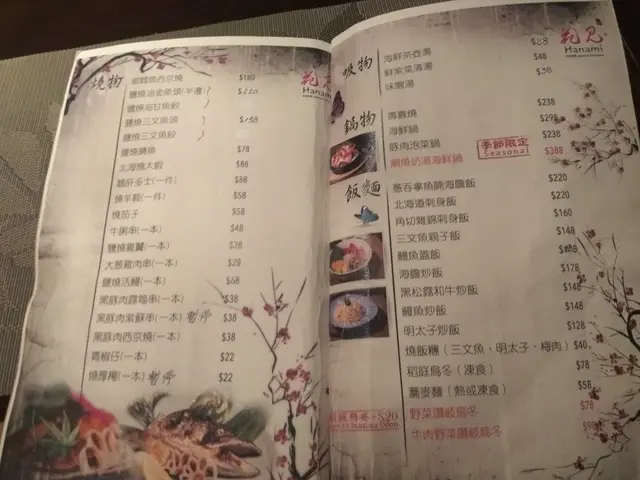 燒物
花見
Hanami
銀鱈魚西京燒 $180
鹽燒油金魚頭(半邊) $220
鹽燒油甘魚鮫
鹽燒三文魚頭 $138
鹽燒三文魚鮫
鹽燒鯖魚 $78
北海燒大蝦 $88
鵝肝多士(一件) $88
燒羊鞍(一件) $58
燒茄子 $58
牛脷串(一本) $48
鹽燒雞翼(一本) $28
大葱雞肉串(一本) $28
鹽燒活鰻(一本) $68
黑豚肉露筍串(一本) $38
黑豚肉紫蘇串(一本) 暫停 $38
黑豚肉西京燒(一本) $38
青椒仔(一本) $22
燒厚楊(一本) 暫停 $22
吸物
花見
Hanami
海鮮茶壺湯 $68
鮮紫菜清湯 $48
味噌湯 $38
鍋物
壽喜燒 $238
海鮮鍋 $298
豚肉泡菜鍋 $238
鯛魚奶湯海鮮鍋 季節限定 Seasonal $388
飯麵
蔥吞拿魚腩海膽飯 $220
北海道刺身飯 $220
角切雜錦刺身飯 $160
三文魚親子飯 $148
鰻魚蓋飯
海膽炒飯 $178
黑松露和牛炒飯 $148
鰻魚炒飯 $148
明太子炒飯 $128
燒飯糰（三文魚・明太子・梅肉） $40
稻庭烏冬（凍食） $78
蕎麥麵（熱或凍食） $58
野菜讚岐烏冬 $78
牛肉野菜讚岐烏冬
烏冬+$20
Inaniwa Udon